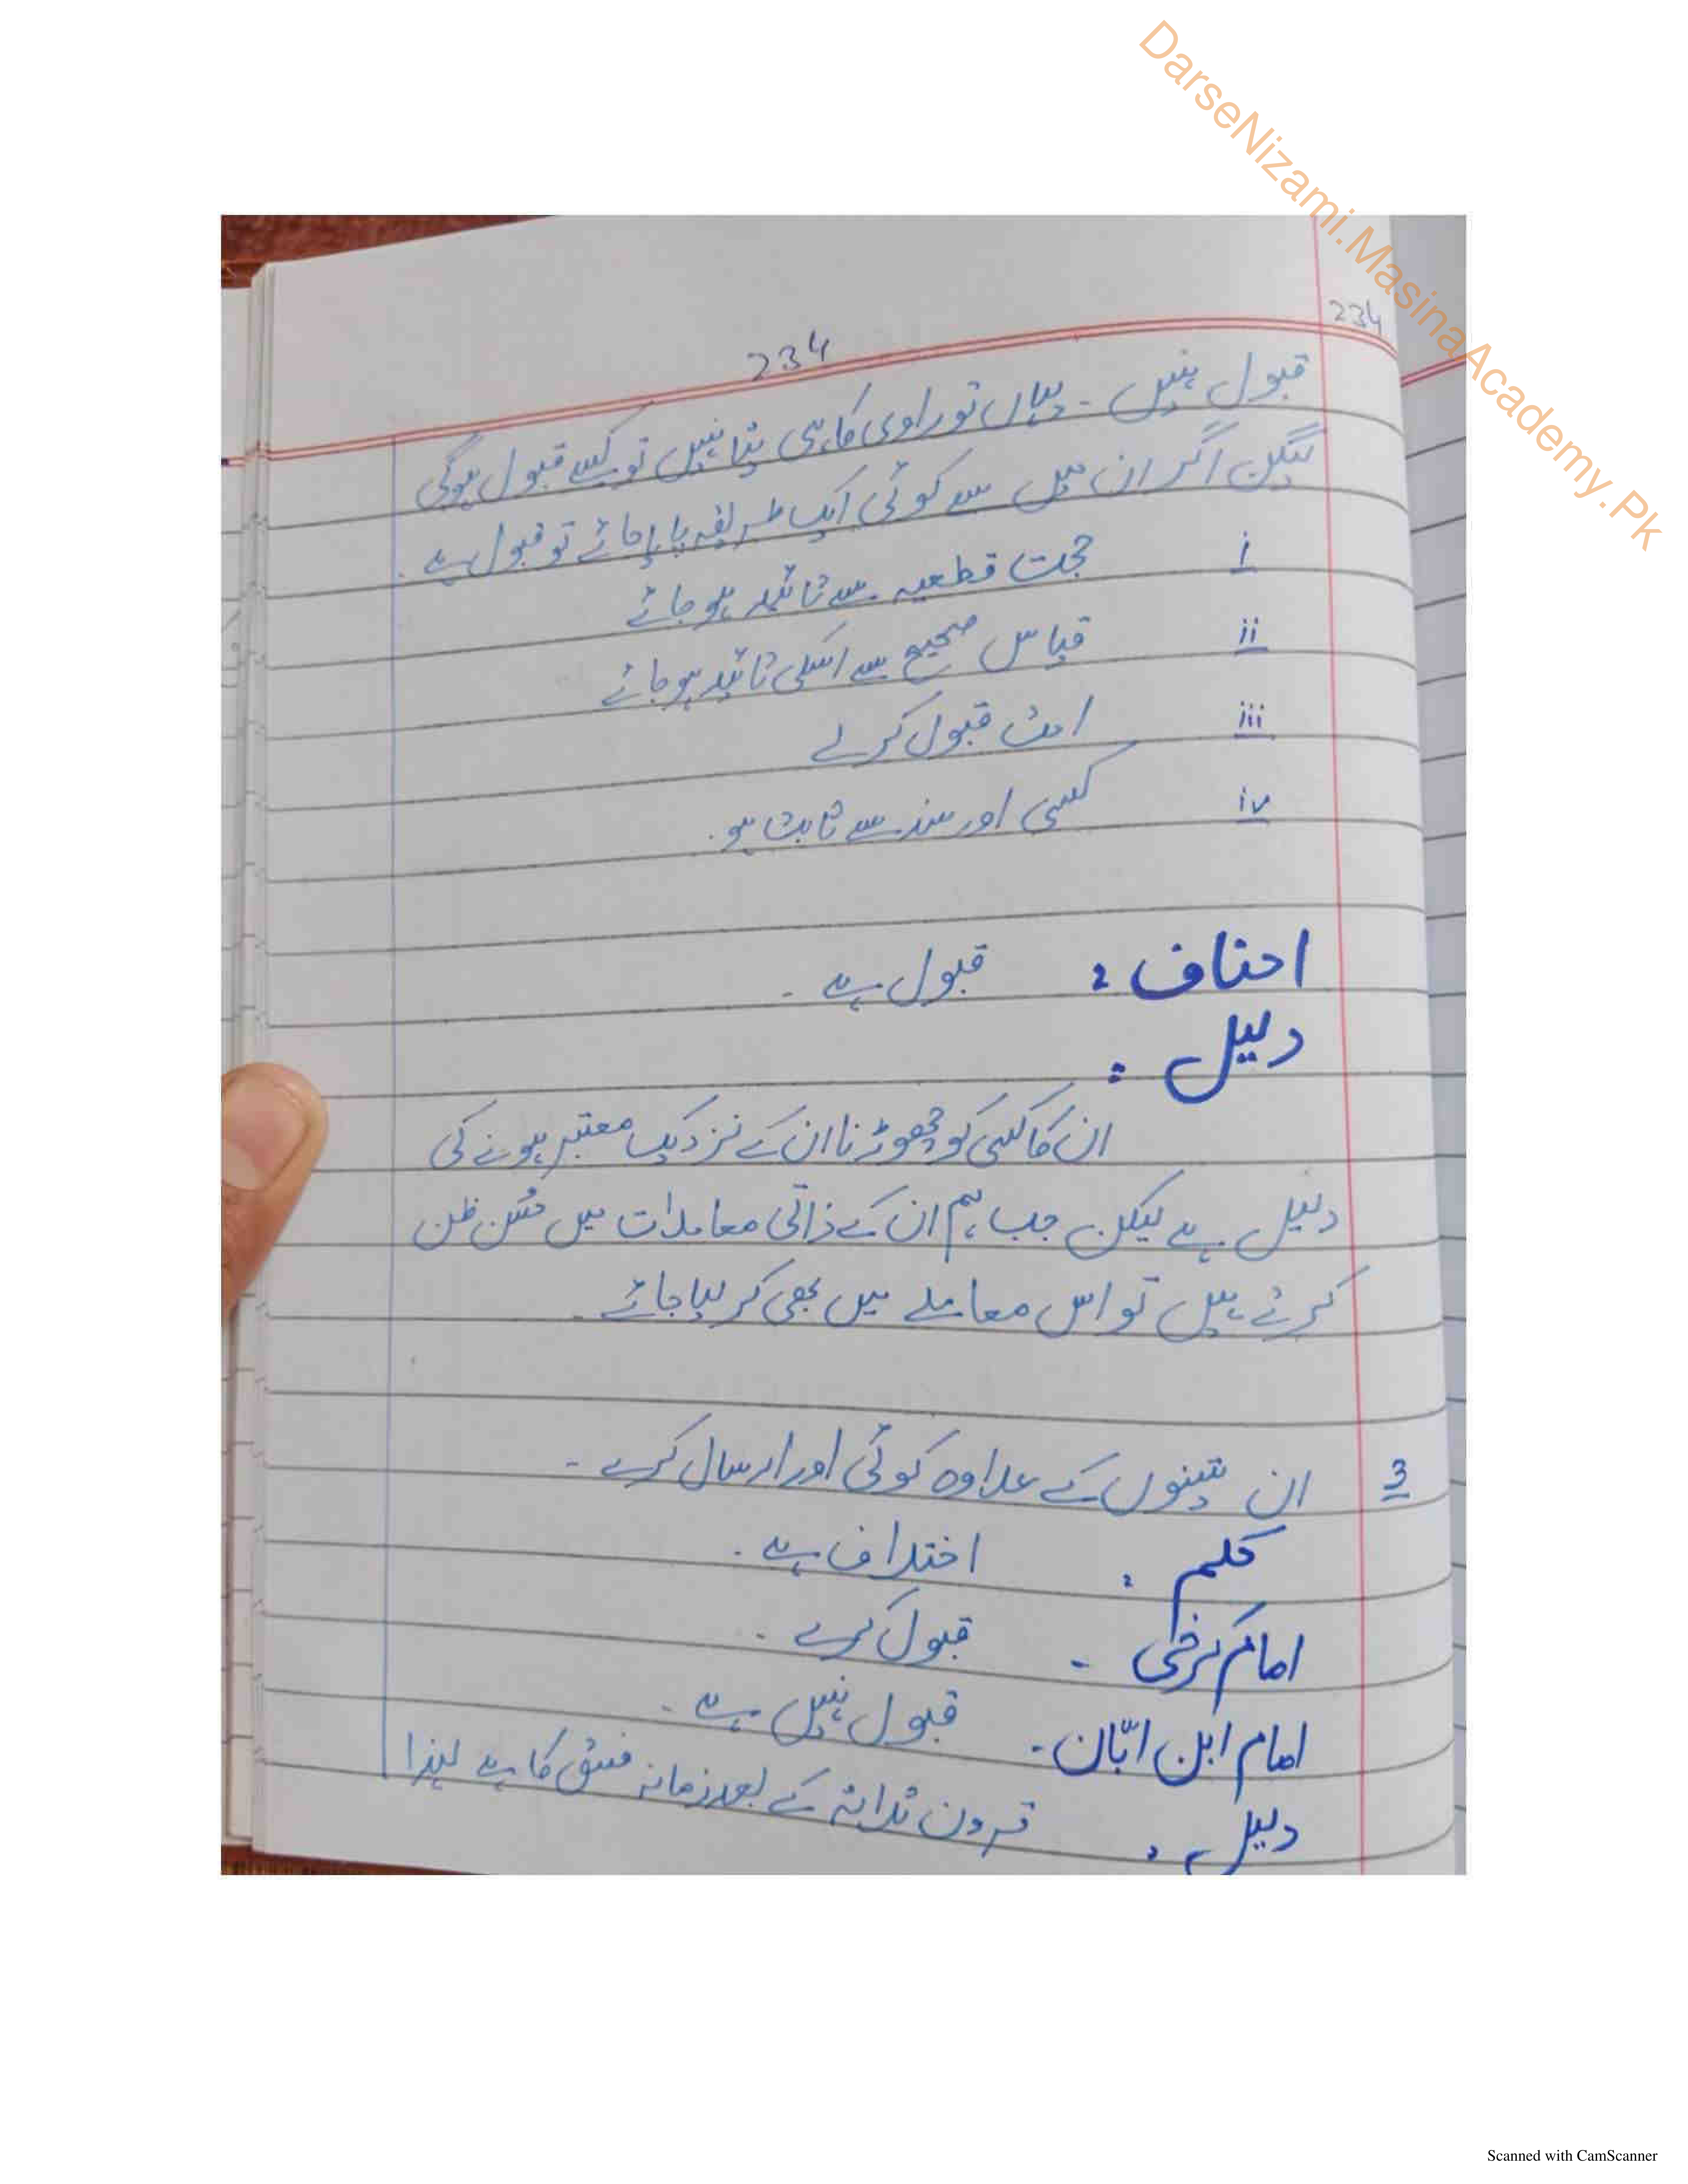 DarseNizami.MasinaAcademy.Pk
234
234
قبول نہیں ۔ یہاں تو راوی کا ہی پتا نہیں تو کیسے قبول ہوگی
لیکن اگر ان میں سے کوئی ایک طریقہ پایا جائے تو قبول ہے ۔
i حجت قطعیہ سے تائید ہو جائے
ii قیاس صحیح سے اسکی تائید ہو جائے
iii امت قبول کرلے
iv کسی اور سند سے ثابت ہو ۔
احناف : قبول ہے ۔
دلیل :
ان کا کسی کو چھوڑنا ان کے نزدیک معتبر ہونے کی
دلیل ہے لیکن جب ہم ان کے ذاتی معاملات میں حُسن ظن
کرتے ہیں تو اس معاملے میں بھی کر لیا جائے ۔
3 ان تینوں کے علاوہ کوئی اور ارسال کرے ۔
حکم : اختلاف ہے ۔
امام کرخی ۔ قبول کرے ۔
امام ابن ابّان ۔ قبول نہیں ہے ۔
دلیل : قرون ثلاثہ کے بعد زمانہ فسق کا ہے لہذا
Scanned with CamScanner